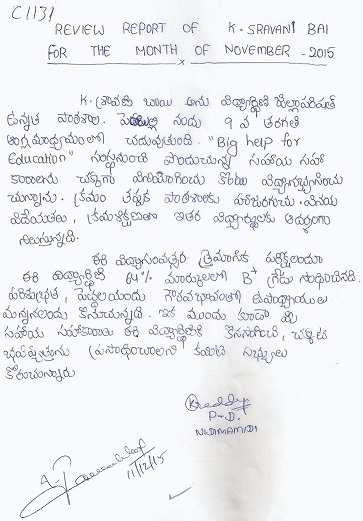 C1131
REVIEW REPORT OF K. SRAVANI BAI
FOR THE MONTH OF NOVEMBER - 2015
K. శ్రావణి బాయి అను విద్యార్థిని జిల్లాపరిషత్
ఉన్నత పాఠశాల నందు 9 వ తరగతి
ఆంగ్లమాధ్యమంలో చదువుతుంది. "Big help for
Education" సంస్థనుండి పొందుచున్న సహాయ సహ
కారాలను చక్కగా వినియోగించు కొంటు విద్యనభ్యసించు
చున్నాను. క్రమం తప్పక పాఠశాలకు హాజరగుచు. వినయ
విధేయతలు, క్రమశిక్షణతో ఇతర విద్యార్థులకు ఆదర్శంగా
నిలుస్తున్నది.
ఈ విద్యాసంవత్సర త్రైమాసిక పరీక్షలందు
ఈ విద్యార్థిని 64% మార్కులతో B+ గ్రేడు సాధించినది.
పరిశుభ్రత, పెద్దలయందు గౌరవభావంతో ఉపాధ్యాయుల
మన్ననలందు కొనుచున్నది. ఇక ముందు కూడా మీ
సహాయ సహకారాలు ఈ విద్యార్థినికి కొనసాగించి, చక్కటి
భవిష్యత్తును ప్రసాదించాలని కమిటి సభ్యులు
కోరుచున్నారు
Kreddy
P.D.
NIDIMAMIDI
11/12/15